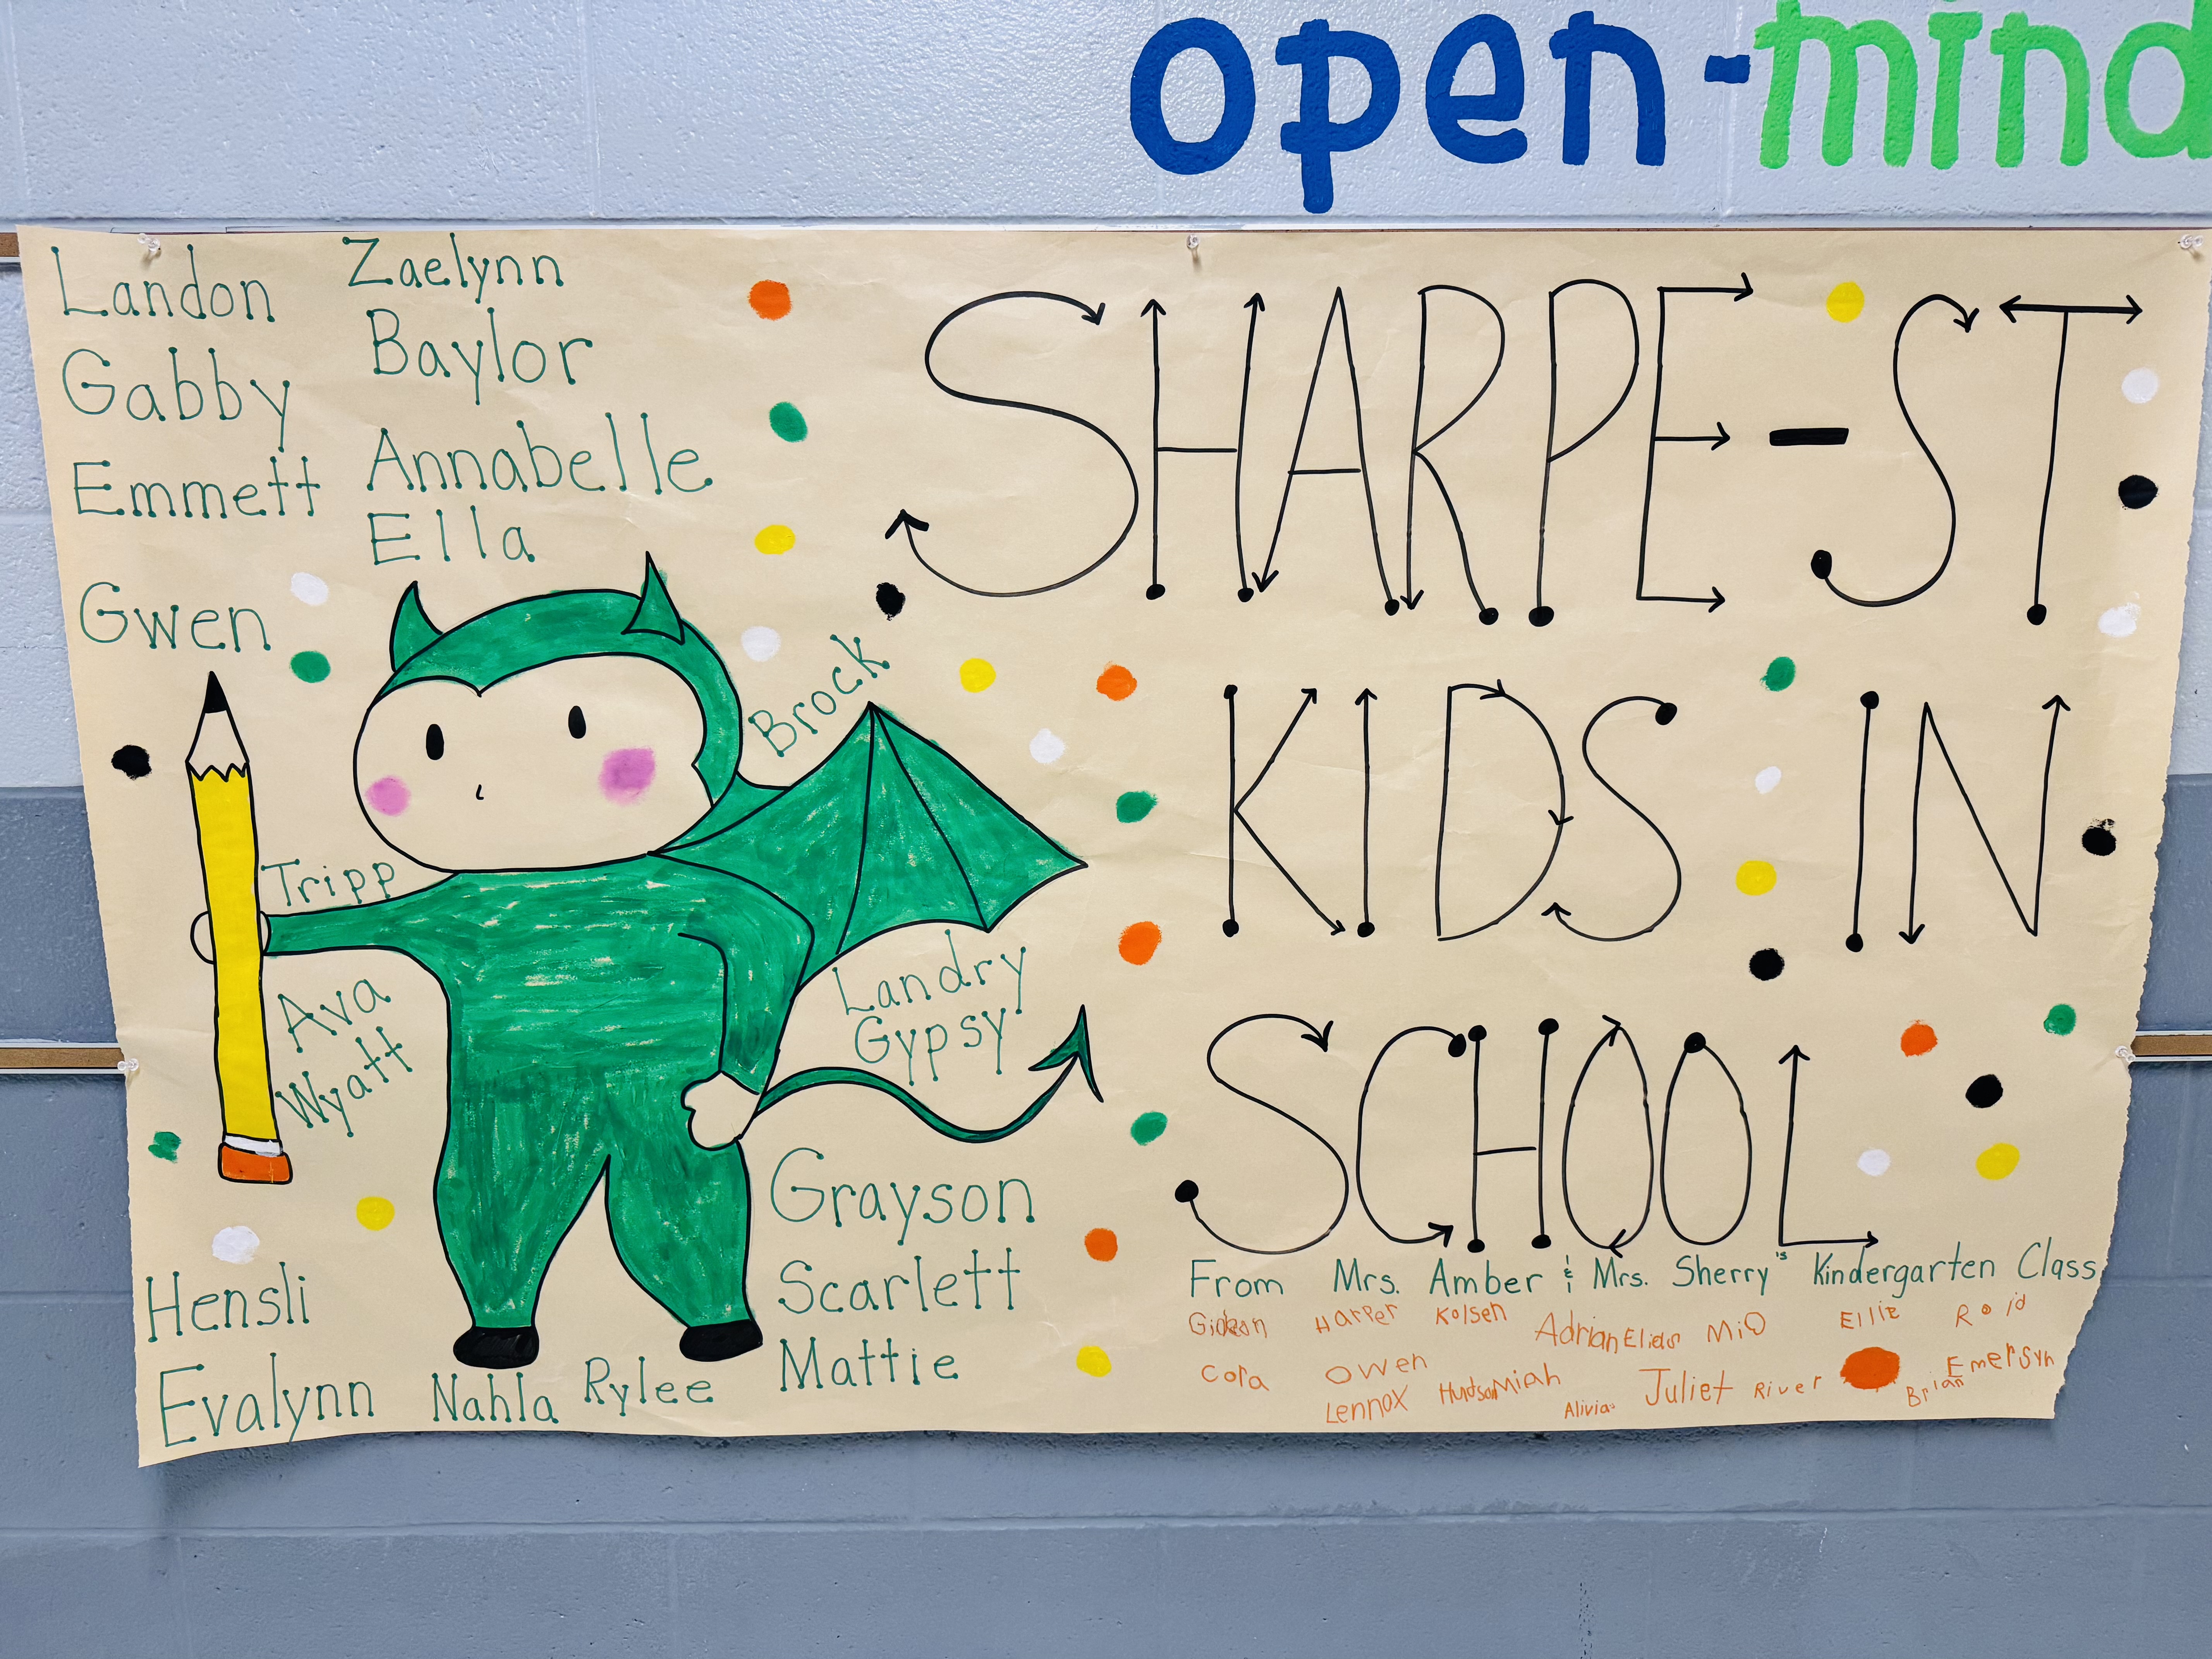 open-mind
Landon Zaelynn
Gabby Baylor
Emmett Annabelle
Ella
Gwen
Brock
Tripp
Ava
Wyatt
Landry
Gypsy
Grayson
Scarlett
Mattie
Hensli
Evalynn Nahla Rylee
SHARPE-ST
KIDS IN
SCHOOL
From Mrs. Amber & Mrs. Sherry's Kindergarten Class
Gideon Harper Kolsen Adrian Elias Mia Ellie
Cora Owen Miah Juliet River Brian Emersyn
Lennox Hudson Alivia